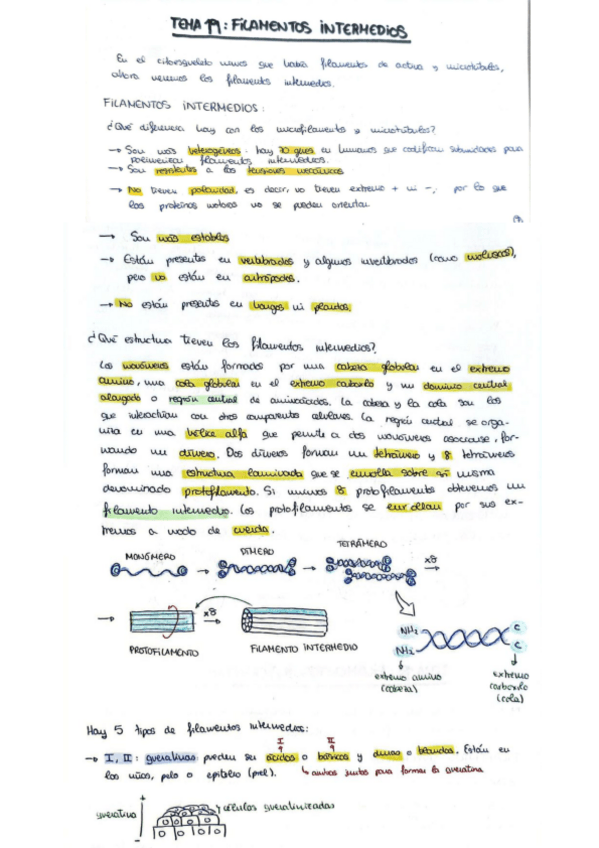 TEMA 19: FILAMENTOS INTERMEDIOS
En el citoesqueleto vimos que había filamentos de actina y microtúbulos,
ahora veremos los filamentos intermedios.
FILAMENTOS INTERMEDIOS:
¿Qué diferencia hay con los microfilamentos y microtúbulos?
→ Son más heterogéneos. Hay 70 genes en humanos que codifican subunidades para
polimerizar filamentos intermedios.
→ Son resistentes a las tensiones mecánicas
→ No tienen polaridad, es decir, no tienen extremo + ni -, por lo que
las proteínas motoras no se pueden orientar
→ Son más estables
→ Están presentes en vertebrados y algunos invertebrados (como moluscos),
pero no están en artrópodos.
→ No están presentes en hongos ni plantas.
¿Qué estructura tienen los filamentos intermedios?
Los monómeros están formados por una cabeza globular en el extremo
amino, una cola globular en el extremo carboxilo y un dominio central
alargado o región central de aminoácidos. La cabeza y la cola son los
que interactúan con otros componentes celulares. La región central se orga-
niza en una hélice alfa que permite a dos monómeros asociarse, for-
mando un dímero. Dos dímeros forman un tetrámero y 8 tetrámeros
forman una estructura laminada que se enrolla sobre sí misma
denominado protofilamento. Si unimos 8 protofilamentos obtenemos un
filamento intermedio. Los protofilamentos se enrollan por sus ex-
tremos a modo de cuerda.
MONÓMERO → DÍMERO → TETRÁMERO x8 →
→ PROTOFILAMENTO x8 → FILAMENTO INTERMEDIO
NH₂ C
NH₂ C
extremo amino (cabeza)
extremo carboxilo (cola)
Hay 5 tipos de filamentos intermedios:
I II
→ I, II: queratinas pueden ser ácidas o básicas y duras o blandas. Están en
las uñas, pelo o epitelio (piel). ↳ ambas juntas para formar la queratina
+
queratina → células queratinizadas
-